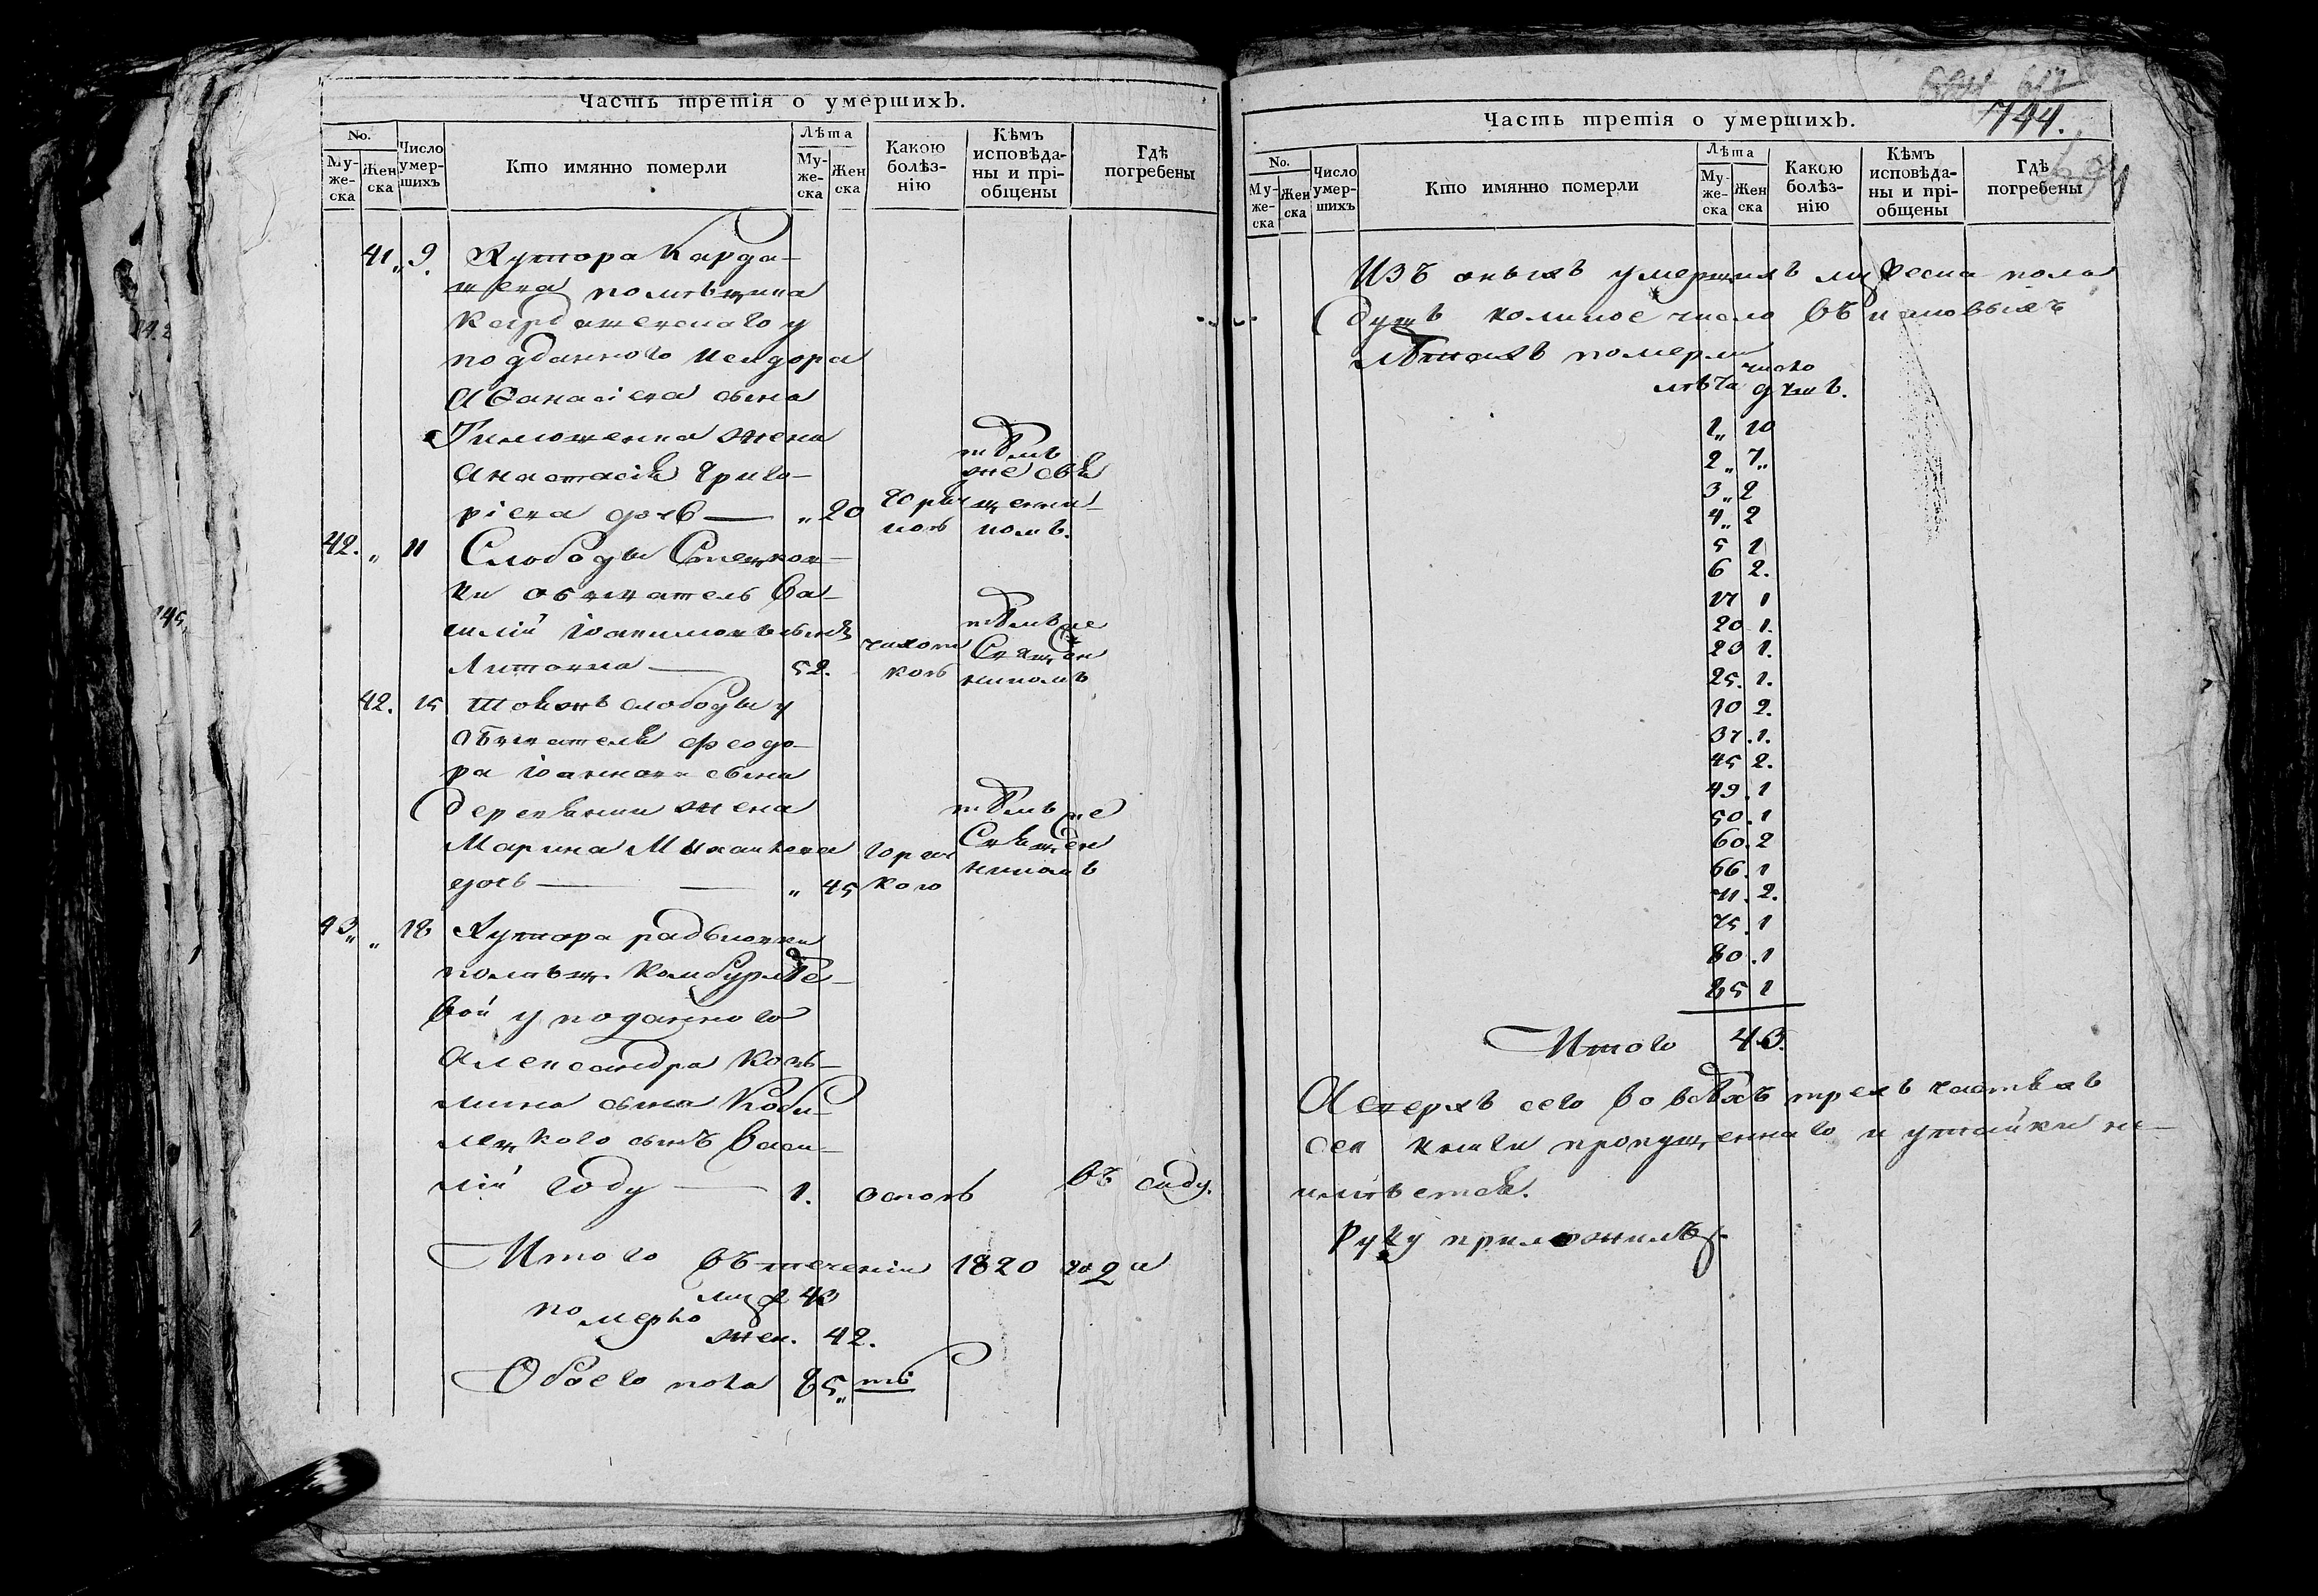 Часть третія о умершихъ.
No.
Му-
же-
ска
Жен
ска
Число
умер-
шихъ
Кто имянно померли
Лѣта
Му-
же-
ска
Жен
ска
Какою
болѣз-
нію
Кѣмъ
исповѣда-
ны и прі-
общены
Гдѣ
погребены
41 „ 9. Хутора Карда-
шева помѣщика
Кардашевскаго у
подданного Исидора
Аѳанасіева сына
Тимошенка жена
Анастасія Григо-
ріева дочь — „ 20 горяч
кою
тѣмъ
же свя
щенни-
комъ.
42. „ 11 Слободы Степков-
ки обыватель Ва-
силій Іоакимовъ сынъ
Литовка — 52. чахот
кою
тѣмъ же
Священ
никомъ
42. 15 Тоей жъ слободы у
обывателя Феодо-
ра Іоаннова сына
Деревянки жена
Марина Михаилова
дочь — — „ 45 горяч
кою
тѣмъ же
Священ
никомъ
43 „ „ 18 Хутора
помѣщ. Комбурлѣе-
вой у поданного
Александра Козь-
мина сына Коби-
лецкого сынъ Васи-
лій году — 1. оспою въ саду.
Итого въ теченіи 1820 года
померло муж 43
жен. 42.
Обоего пола 85 „ ть
744.
Часть третія о умершихъ.
No.
Му-
же-
ска
Жен
ска
Число
умер-
шихъ
Кто имянно померли
Лѣта
Му-
же-
ска
Жен
ска
Какою
болѣз-
нію
Кѣмъ
исповѣда-
ны и прі-
общены
Гдѣ
погребены
Изъ оныхъ умершихъ мужеска пола
душъ коликое число въ каковыхъ
лѣтахъ померли
лѣта число
душъ.
1 „ 10
2 „ 7 „
3 „ 2
4 „ 2
5 1
6 2.
17 1
20 1.
23 1.
25. 1.
30 2.
37. 1.
45 2.
49. 1
50. 1
60. 2
66. 1
71. 2.
75. 1
80. 1
85 1
Итого 43.
А сверхъ сего во всѣхъ трехъ частяхъ
сея книги пропущеннаго и утайки не-
имѣется.
Руку приложилъ